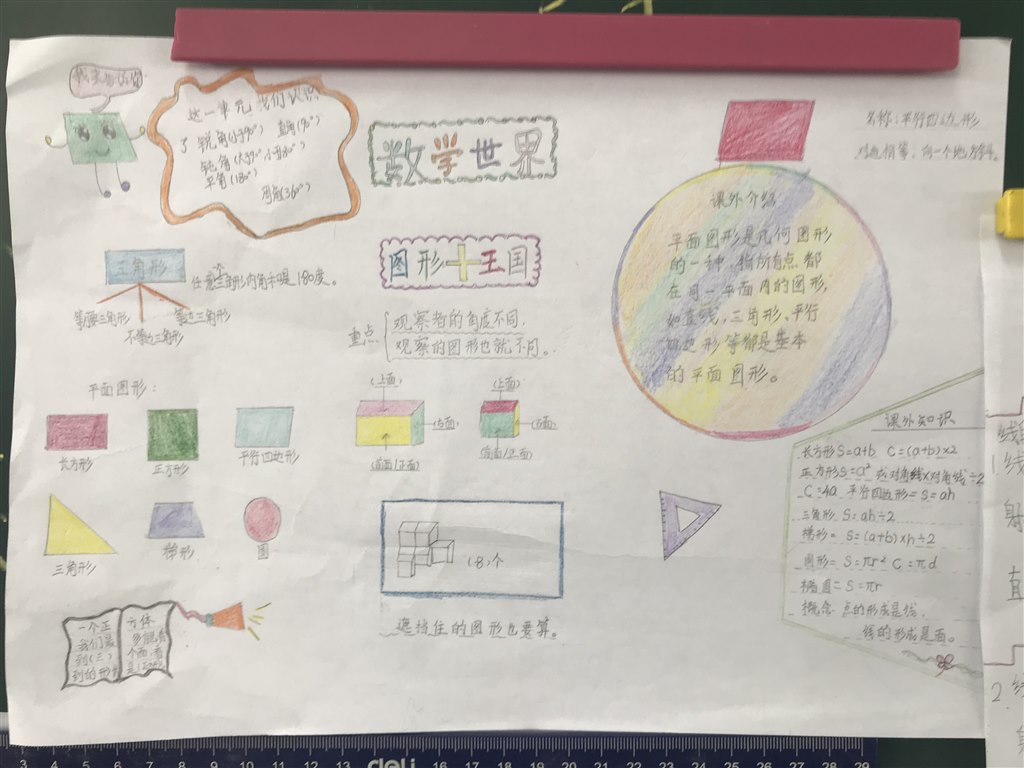 我来告诉你
这一单元我们认识
了 锐角(小于90°) 直角(90°)
钝角(大于90°小于180°)
平角(180°)
周角(360°)
数学世界
名称:平行四边形
三角形
任意三角形内角和是180度。
等腰三角形
等边三角形
不等边三角形
图形王国
重点
观察者的角度不同,
观察的图形也就不同。
课外介绍
平面图形是几何图形
的一种,指所有点都
在同一平面内的图形,
如直线,三角形、平行
四边形等都是基本
的平面图形。
平面图形:
长方形
正方形
平行四边形
三角形
梯形
圆
(上面)
(右面)
(前面/正面)
(上面)
(右面)
(前面/正面)
(8)个
遮挡住的图形也要算。
一个正
我们最
到(三)
到的形
方体
多能看
个面,看
课外知识
长方形S=a+b C=(a+b)×2
正方形S=a² 或对角线×对角线÷2
C=4a 平行四边形=S=ah
三角形 S=ah÷2
梯形= S=(a+b)×h÷2
圆形= S=πr² C=πd
椭圆= S=πr
概念 点的形成是线,
线的形成是面。
1.线
射
直
2.线
deli
3 4 5 6 7 8 9 10 11 12 13 16 17 18 19 20 21 22 23 24 25 26 27 28 29